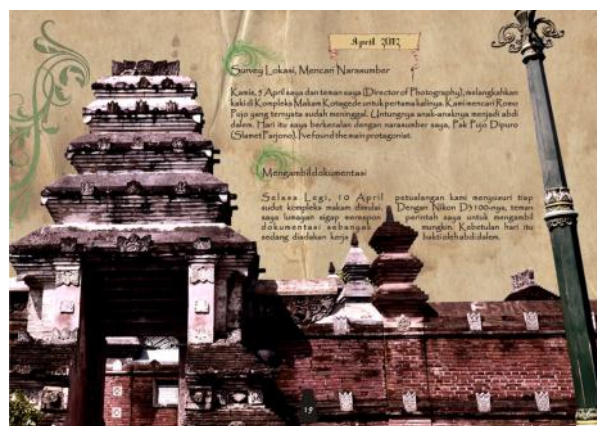 April 2012
Survey Lokasi, Mencari Narasumber
Kamis, 5 April saya dan teman saya (Director of Photography), melangkahkan
kaki di Kompleks Makam Kotagede untuk pertama kalinya. Kami mencari Romo
Pujo yang ternyata sudah meninggal. Untungnya anak-anaknya menjadi abdi
dalem. Hari itu saya berkenalan dengan narasumber saya, Pak Pujo Dipuro
(Slamet Parjono). I've found the main protagonist.
Mengambil dokumentasi
Selasa Legi, 10 April petualangan kami menyusuri tiap
sudut kompleks makam dimulai. Dengan Nikon D3100-nya, teman
saya lumayan sigap merespon perintah saya untuk mengambil
dokumentasi sebanyak mungkin. Kebetulan hari itu
sedang diadakan kerja bakti oleh abdi dalem.
19